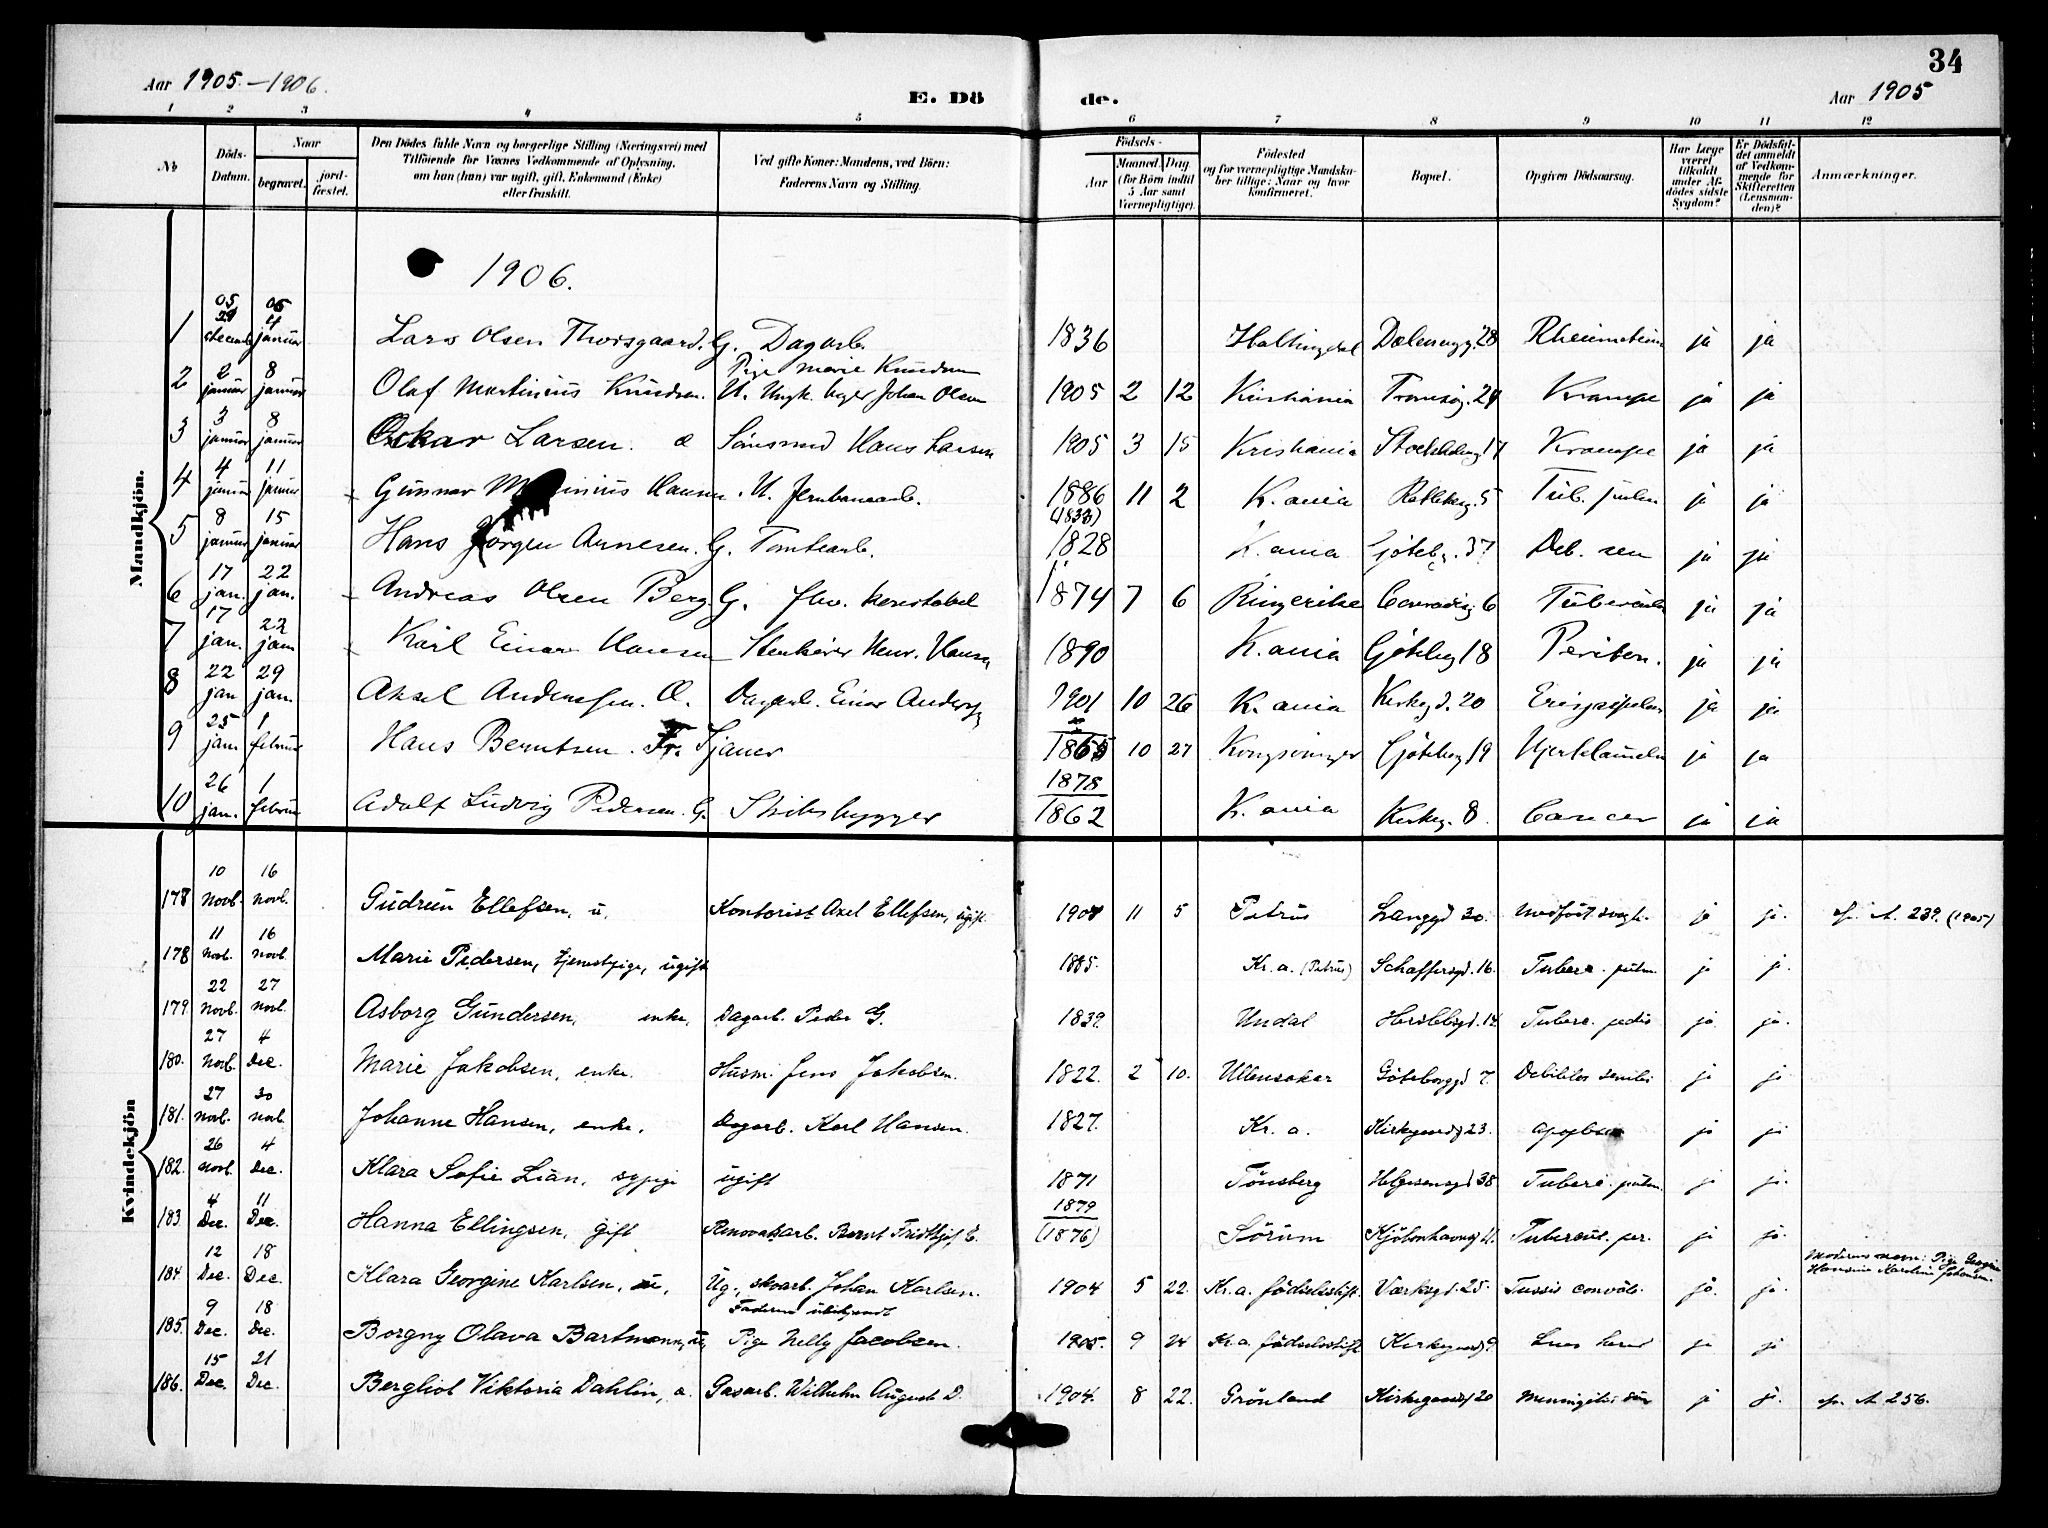 34
Aar 1905.–1906. E. Dö de. Aar 1905
1 2 3 4 5 6 7 8 9 10 11 12
No. Döds-Datum. Naar begravet. jordfæstet. Den Dödes fulde Navn og borgerlige Stilling (Næringsvei) med Tilföiende for Voxnes Vedkommende af Oplysning, om han (hun) var ugift, gift, Enkemand (Enke) eller fraskilt. Ved gifte Koner: Mandens, ved Börn: Faderens Navn og Stilling. Födsels- Aar Maaned. Dag. (for Börn indtil 5 Aar samt Værnepligtige). Födested og for værnepligtige Mandskaber tillige: Naar og hvor konfirmeret. Bopæl. Opgiven Dödsaarsag. Har Læge været tilkaldt under Afdödes sidste Sygdom? Er Dödsfaldet anmeldt af Vedkommende for Skifteretten (Lensmanden)? Anmærkninger.
Mandkjön.
1906.
1 05 29 decemb 06 4 januar Lars Olsen Thorsgaard. G. Dagarb. 1836 Hallingdal Dælenengg. 28 Rheumatism ja ja
Pige Marie Knudsen
2 2 januar 8 januar Olaf Martinius Knudsen. U. Ungk. Johan Olsen 1905 2 12 Kristiania Tromsög. 29 Krampe ja ja
3 3 januar 8 januar Oskar Larsen. Hans Larsen 1905 3 15 Kristiania 17 Krampe ja ja
4 4 januar 11 januar Gunnar Hansen. U. Jernbanearb. 1886 11 2 K.ania 5 Tub. pulm ja ja
(1833)
5 8 januar 15 januar Hans Jörgen Arnesen. G. Tomtearb. 1828 K.ania Göteb.g. 37 Deb. sen ja ja
6 17 jan. 22 jan. Andreas Olsen Berg. G. fhv. konstabel 1874 7 6 Ringerike Conradisg 6 ja ja
7 17 jan. 22 jan Karl Einar Hansen Stenhörer Henr. Hansen 1890 K.ania Götebg 18 Periton. ja ja
8 22 jan 29 jan. Aksel Anderssen. Dagarb. Einar Anderssen 1901 10 26 K.ania Kirkegd. 20 ja ja
9 25 jan. 1 februar Hans Berntsen. Fr. Sjauer 1865 10 27 Kongsvinger Götebog 19 ja ja
1878
10 26 jan. 1 februar Adolf Ludvig Pedersen. G. Skibsbygger 1862 K.ania Kirkeg. 8. Cancer ja ja
Kvindekjön
178 10 Novb. 16 Novb. Gudrun Ellefsen, u. Kontorist Axel Ellefsen, ugift. 1904 11 5 Petrus Langgd 30. Medfödt svagh. ja ja. cfr. A. 239. (1905)
178 11 Novb. 16 Novb Marie Pedersen, tjenestpige, ugift 1885. Kr.a. (Petrus) Schaffersgd. 16. Tuberc. pulm. ja ja.
179. 22 Novb. 27 Novb. Asborg Gundersen, enke, Dagarb. Peder G. 1839. Undal Herslebsgd. 14. Tuberc. pedis ja ja.
180. 27 Novb. 4 Dec. Marie Jakobsen, enke. Husm. Jens Jakobsen. 1822. 2 10. Ullensaker Göteborggd 7. Debilitas senilis ja ja
181. 27 Novb. 30 Novb. Johanne Hansen, enke. Dagarb. Karl Hansen. 1827. Kr.a. Kirkegaardg 23. ja ja
182. 26 Novb. 4 Dec. Klara Sofie Lian, sypige ugift 1871 Tönsberg Helgesensgd 38 Tuberc. pulm. ja ja.
1879
183 4 Dec. 11 Dec. Hanna Ellingsen, gift Renovatarb. Bernt Fridthjof E. (1876) Sörum Kjöbenhavnsg 11. Tubercul. per. ja ja.
Moderens navn: Pige Georgine Hansine Karoline Johansen.
184. 12 Dec. 18 Dec. Klara Georgine Karlsen, u, Ug., skoarb. Johan Karlsen. 1904 5 22. Kr.a. födselsstift. Værksgd. 25. Tussis convuls. ja. ja.
Faderen ubekjendt
185. 9 Dec. 18 Dec. Borgny Olava Bartmann, u, Pige Nelly Jacobsen. 1905. 9 24 Kr.a. födselsstift Kirkegaardg 9 ja ja
186. 15 Dec. 21 Dec. Bergliot Viktoria Dahlin, Gasarb. Wilhelm August D. 1904. 8 22. Grönland Kirkegaardg 20 ja ja. cfr. A 256.